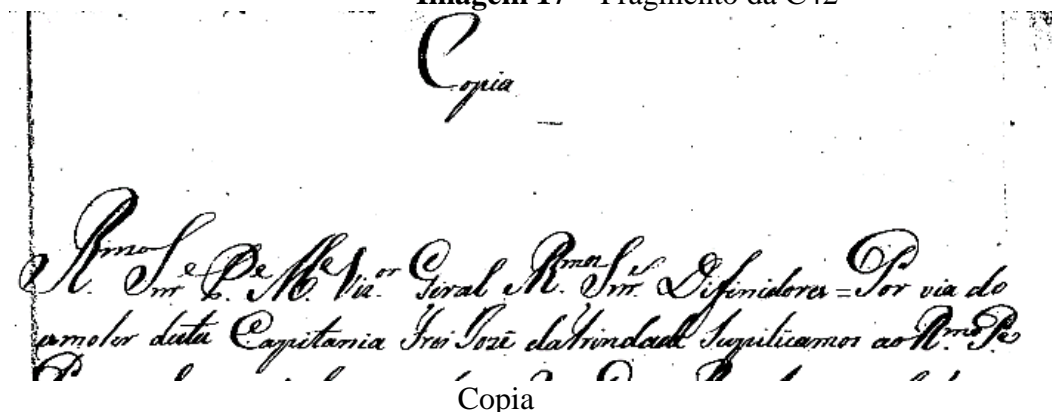 Imagem 17 – Fragmento da C42
Copia
R.mo Snr. P.e M.e Viz.or Geral R.mos Snr.es Difinidores = Por via do
esmoler desta Capitania Frei José da Trindade Supilicamos ao R.mo P.e
Copia